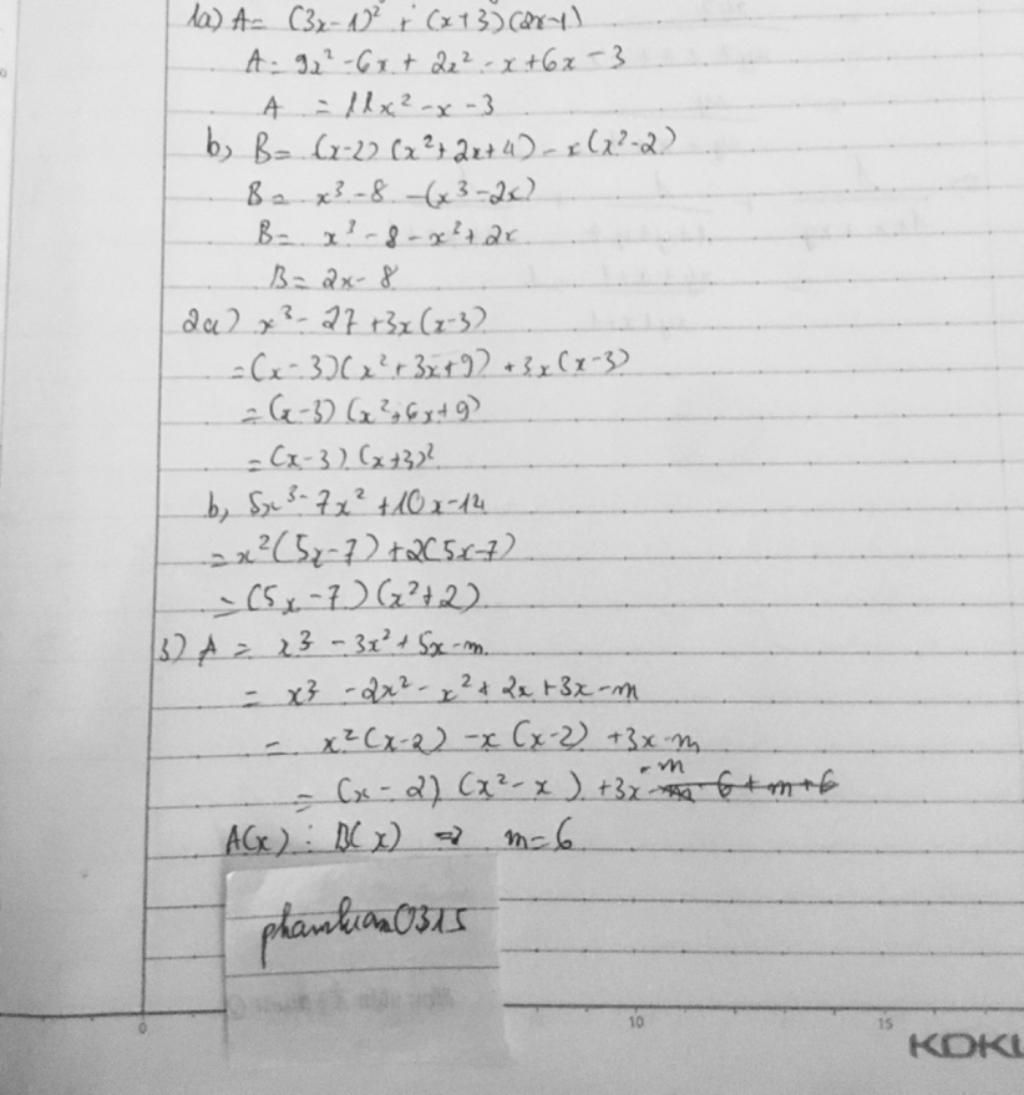 1a) A = (3x-1)² + (x+3)(2x-1)
A = 9x² - 6x + 2x² - x + 6x - 3
A = 11x² - x - 3
b, B = (x-2) (x² + 2x + 4) - x(x² - 2)
B = x³ - 8 - (x³ - 2x)
B = x³ - 8 - x³ + 2x
B = 2x - 8
2a) x³ - 27 + 3x(x-3)
= (x-3)(x² + 3x + 9) + 3x(x-3)
= (x-3) (x² + 6x + 9)
= (x-3) (x+3)²
b, 5x³ - 7x² + 10x - 14
= x²(5x-7) + 2(5x-7)
= (5x-7)(x²+2)
3) A = x³ - 3x² + 5x - m
= x³ - 2x² - x² + 2x + 3x - m
= x²(x-2) - x(x-2) + 3x - m
= (x-2) (x² - x) + 3x - m
A(x) ⋮ B(x) ⇒ m = 6
phamluan0315
0 10 15